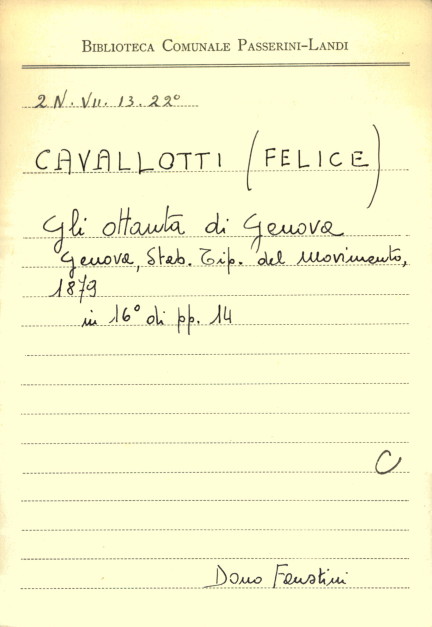 BIBLIOTECA COMUNALE PASSERINI-LANDI
2 N. VII. 13. 22°
CAVALLOTTI (FELICE)
Gli ottanta di Genova
Genova, Stab. Tip. del Movimento,
1879
in 16° di pp. 14
C
Dono Faustini